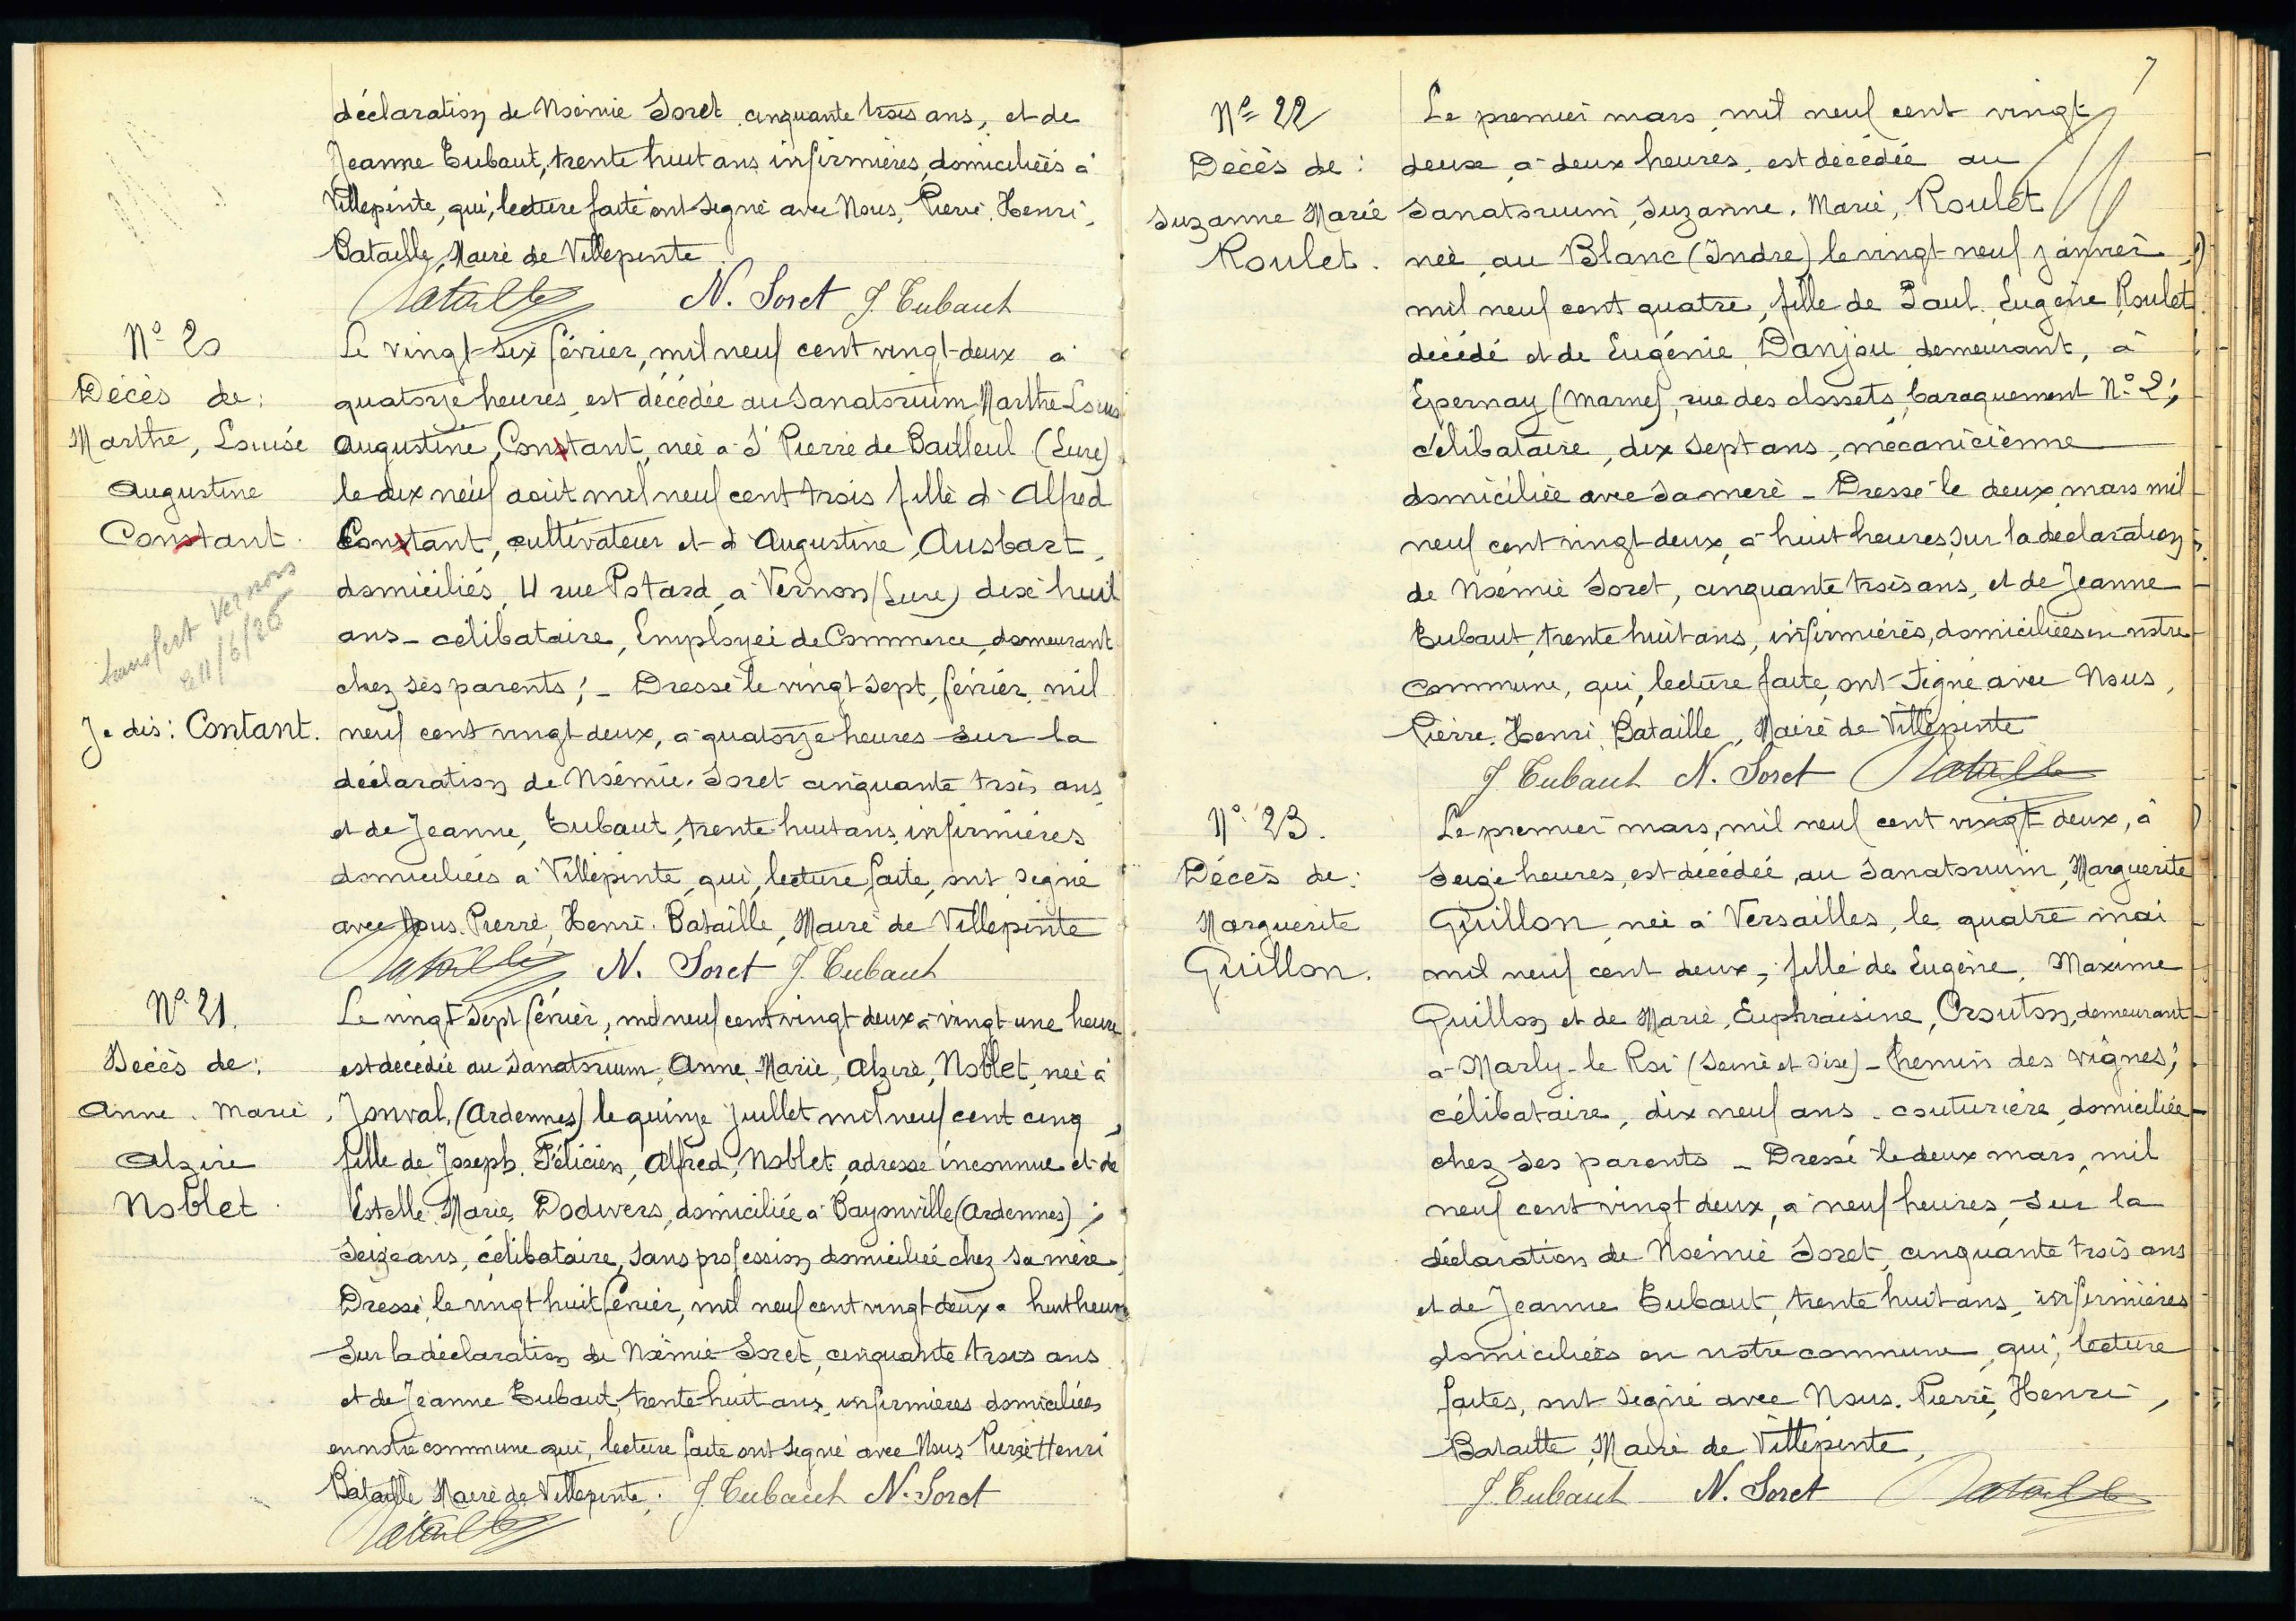 déclaration de Noémie Soret cinquante trois ans, et de
Jeanne Tubaut, trente huit ans infirmières, domiciliées à
Villepinte, qui, lecture faite ont signé avec Nous, Pierre, Henri,
Bataille, Maire de Villepinte
Bataille N. Soret J. Tubaut
N° 20
Décès de:
Marthe, Louise
Augustine
Constant.
transfert Vernon
211/6/26
Je dis: Contant.
Le vingt-six février, mil neuf cent vingt-deux à
quatorze heures, est décédée au Sanatorium, Marthe Louise
Augustine, Constant, née à St Pierre de Bailleul (Eure)
le dix neuf août mil neuf cent trois fille d'Alfred
Constant, cultivateur et d'Augustine, Ausbart,
domiciliés, 4 rue Potard, à Vernon (Eure) dix huit
ans - célibataire, Employée de Commerce, demeurant
chez ses parents; - Dressé le vingt sept, février, mil
neuf cent vingt deux, à quatorze heures sur la
déclaration de Noémie. Soret cinquante trois ans,
et de Jeanne, Tubaut, trente huit ans, infirmières
domiciliées à Villepinte, qui, lecture faite, ont signé
avec Nous. Pierre, Henri. Bataille, Maire de Villepinte
Bataille N. Soret J. Tubaut
N° 21.
Décès de:
Anne. Marie,
Alzire
Noblet.
Le vingt sept février, mil neuf cent vingt deux à vingt-une heure
est décédée au Sanatorium, Anne, Marie, Alzire, Noblet, née à
Jonval, (Ardennes) le quinze Juillet mil neuf cent cinq,
fille de Joseph, Félicien, Alfred, Noblet, adresse inconnue et de
Estelle, Marie, Dodivers, domiciliée à Bayonville (Ardennes);
Seize ans, célibataire, sans profession domiciliée chez sa mère,
Dressé, le vingt huit février, mil neuf cent vingt deux à huit heures
Sur la déclaration de Noémie Soret, cinquante trois ans
et de Jeanne Tubaut, trente-huit ans, infirmières domiciliées
en notre commune qui, lecture faite ont signé avec Nous Pierre Henri
Bataille Maire de Villepinte. J. Tubaut N. Soret
Bataille
7
N° 22
Décès de:
Suzanne Marie
Roulet.
Le premier mars, mil neuf cent vingt
deux, à deux heures, est décédée au
Sanatorium, Suzanne. Marie, Roulet
née, au Blanc (Indre) le vingt-neuf janvier,
mil neuf cent quatre, fille de Paul. Eugène Roulet
décédé et de Eugénie, Danjou, demeurant, à
Epernay (Marne), rue des closets, baraquement N° 2;
célibataire, dix sept ans, mécanicienne
domiciliée avec sa mère - Dressé le deux mars mil
neuf cent vingt deux, à huit heures, sur la déclaration
de Noémie Soret, cinquante trois ans, et de Jeanne
Tubaut, trente huit ans, infirmières, domiciliées en notre
commune, qui, lecture faite, ont signé avec Nous,
Pierre. Henri, Bataille, Maire de Villepinte
J. Tubaut N. Soret Bataille
N° 23.
Décès de:
Marguerite
Guillon.
Le premier mars, mil neuf cent vingt deux, à
seize heures, est décédée, au Sanatorium, Marguerite
Guillon, née à Versailles, le quatre mai
mil neuf cent deux, fille de Eugène, Maxime
Guillon et de Marie, Euphraisine, Crouton, demeurant
à Marly-le Roi (Seine et Oise) - Chemin des Vignes;
célibataire, dix neuf ans. couturière, domiciliée
chez ses parents - Dressé le deux mars, mil
neuf cent vingt deux, à neuf heures, sur la
déclaration de Noémie Soret, cinquante trois ans
et de Jeanne Tubaut, trente huit ans, infirmières
domiciliées en notre commune, qui, lecture
faites, ont signé avec Nous. Pierre, Henri,
Bataille, Maire de Villepinte,
J. Tubaut N. Soret Bataille